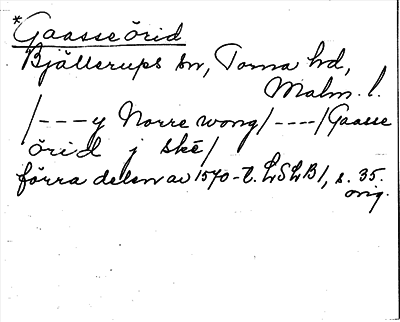 *Gaasseörid
Bjällerups sn, Torna hd,
Malm. l.
/---y Norre wong/----/Gaasse
örid j skē/
förra delen av 1570-t. LSLB1, s. 35.
orig.